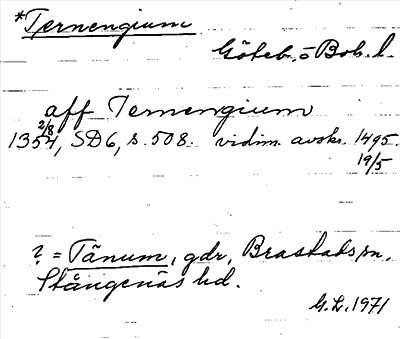 *Ternengium
Göteb. o Boh. l.
aff Ternengium
2/8
1354, SD6, s. 508. vidim. avskr. 1495.
19/5
? = Tånum, gdr, Brastads sn,
Stångenäs hd.
G.L. 1971